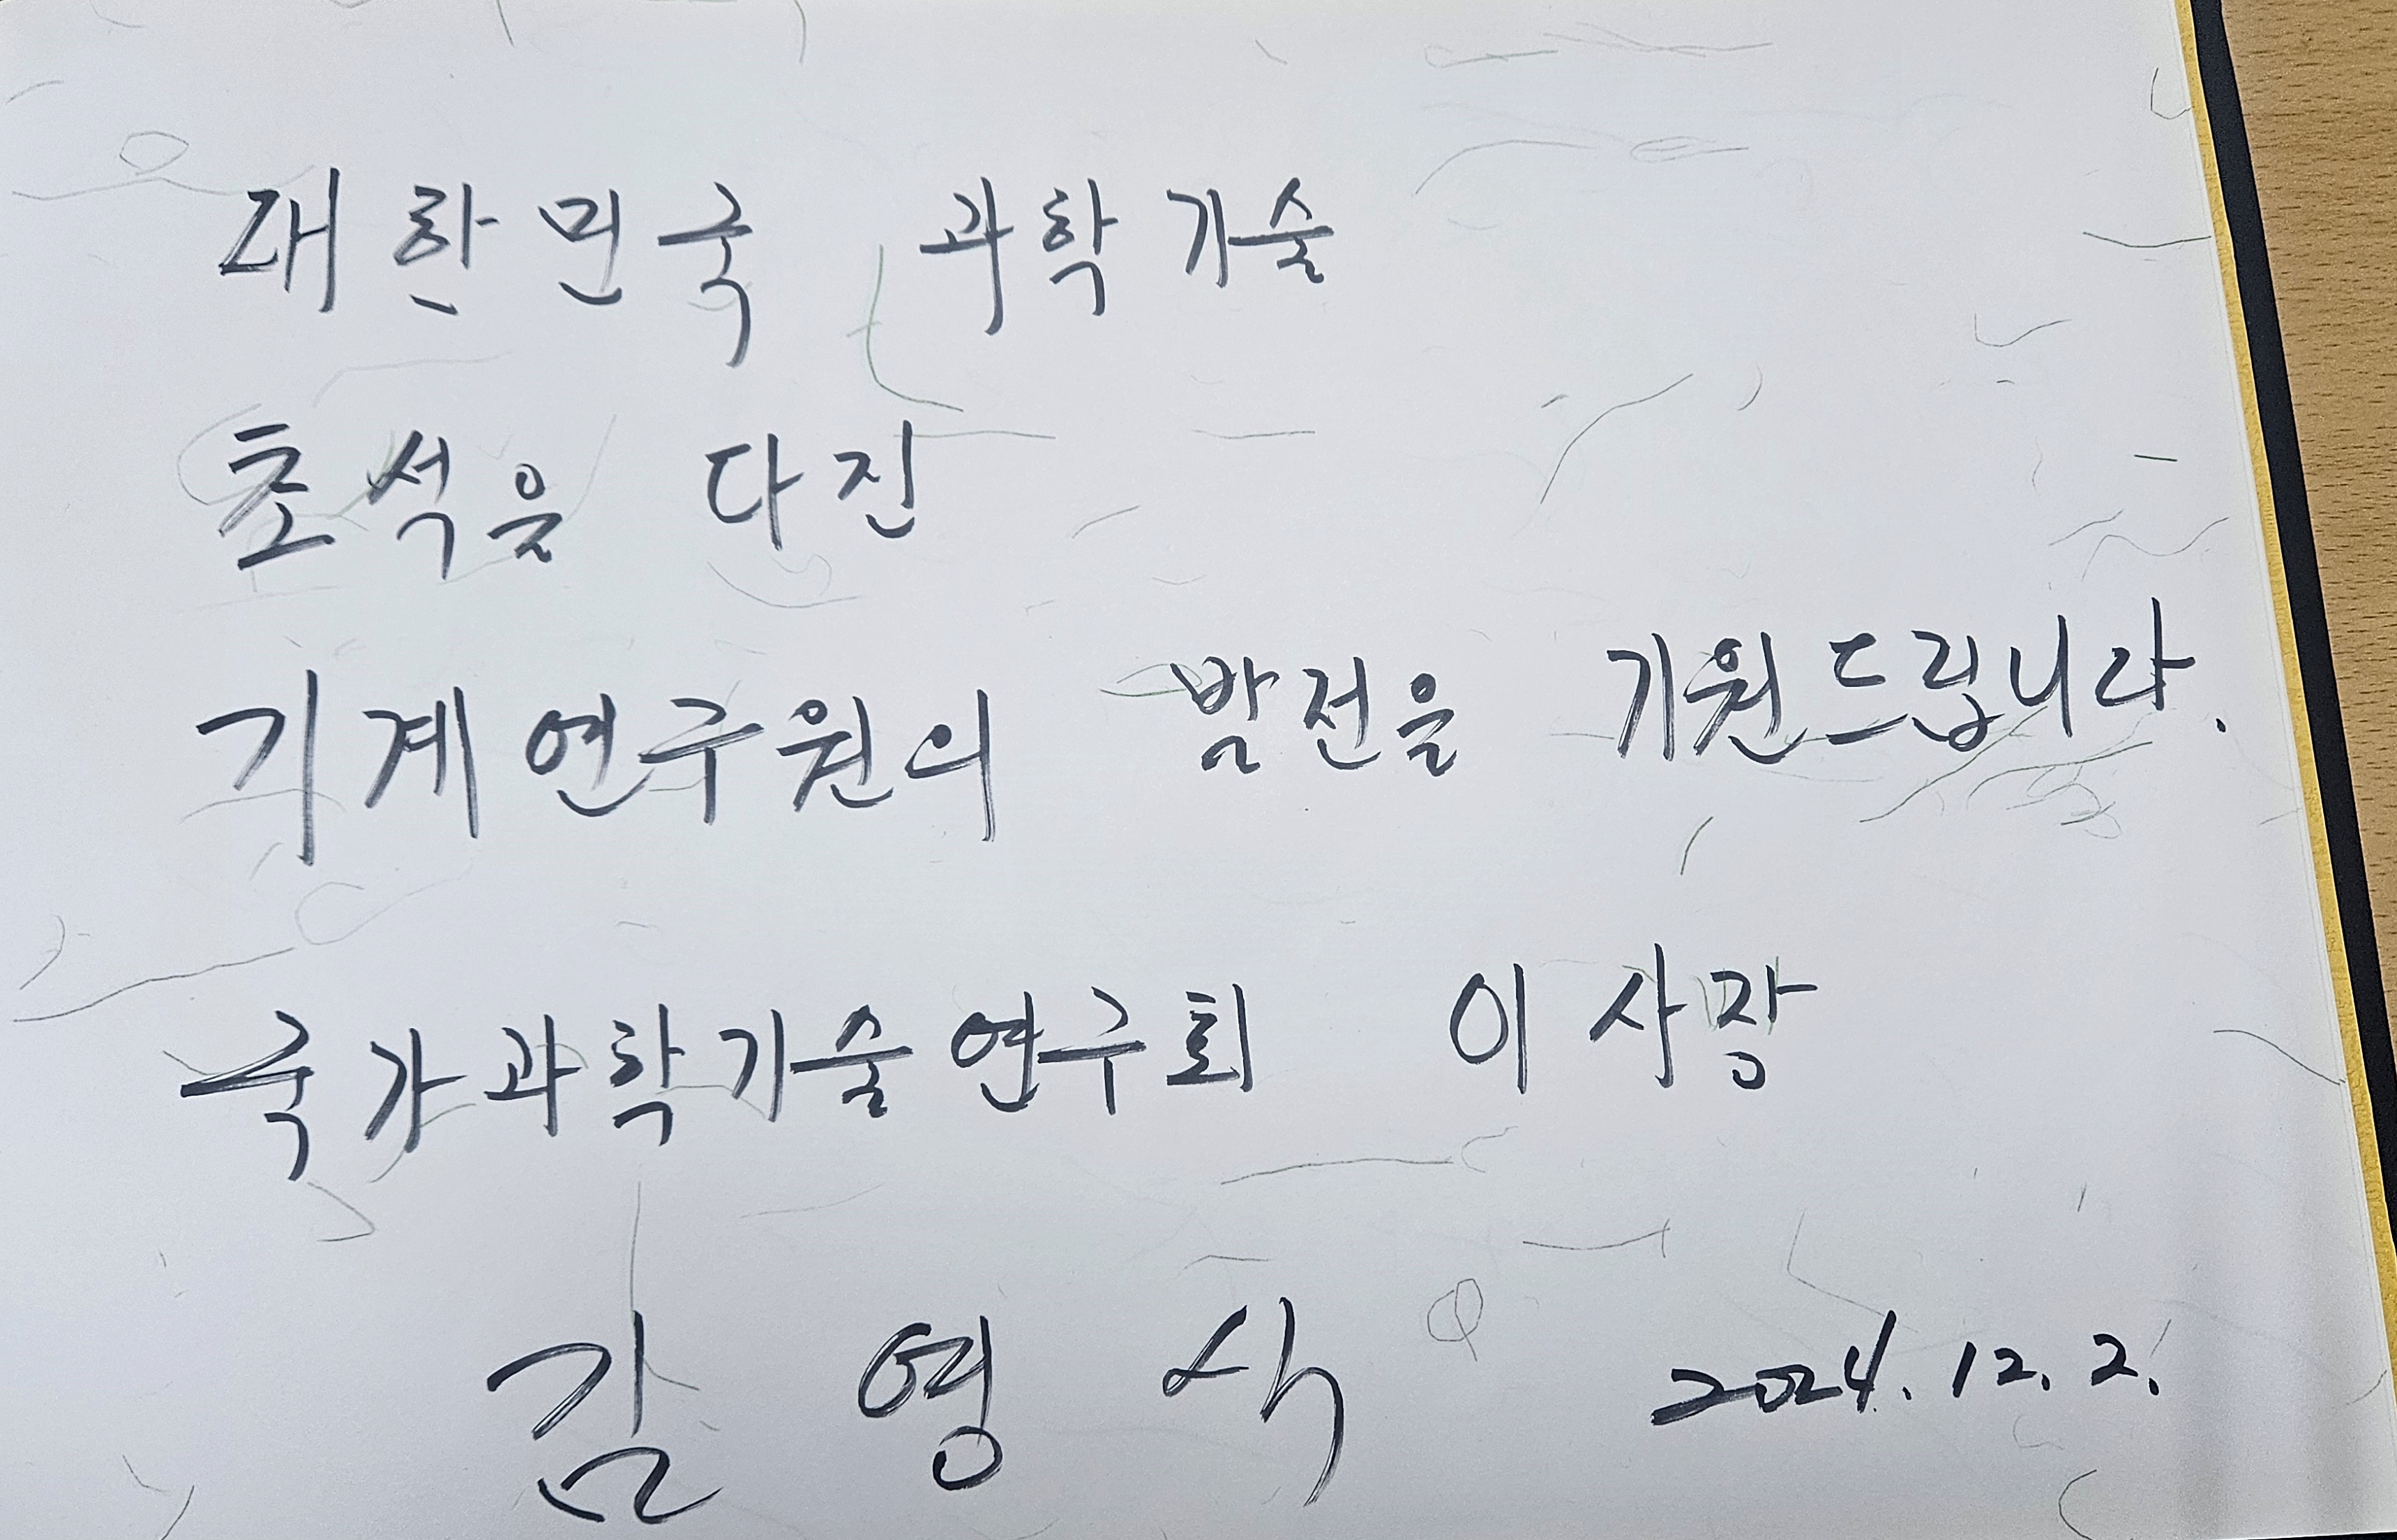 대한민국 과학기술
초석을 다진
기계연구원의 발전을 기원드립니다.
국가과학기술연구회 이사장
김영식 2024. 12. 2.